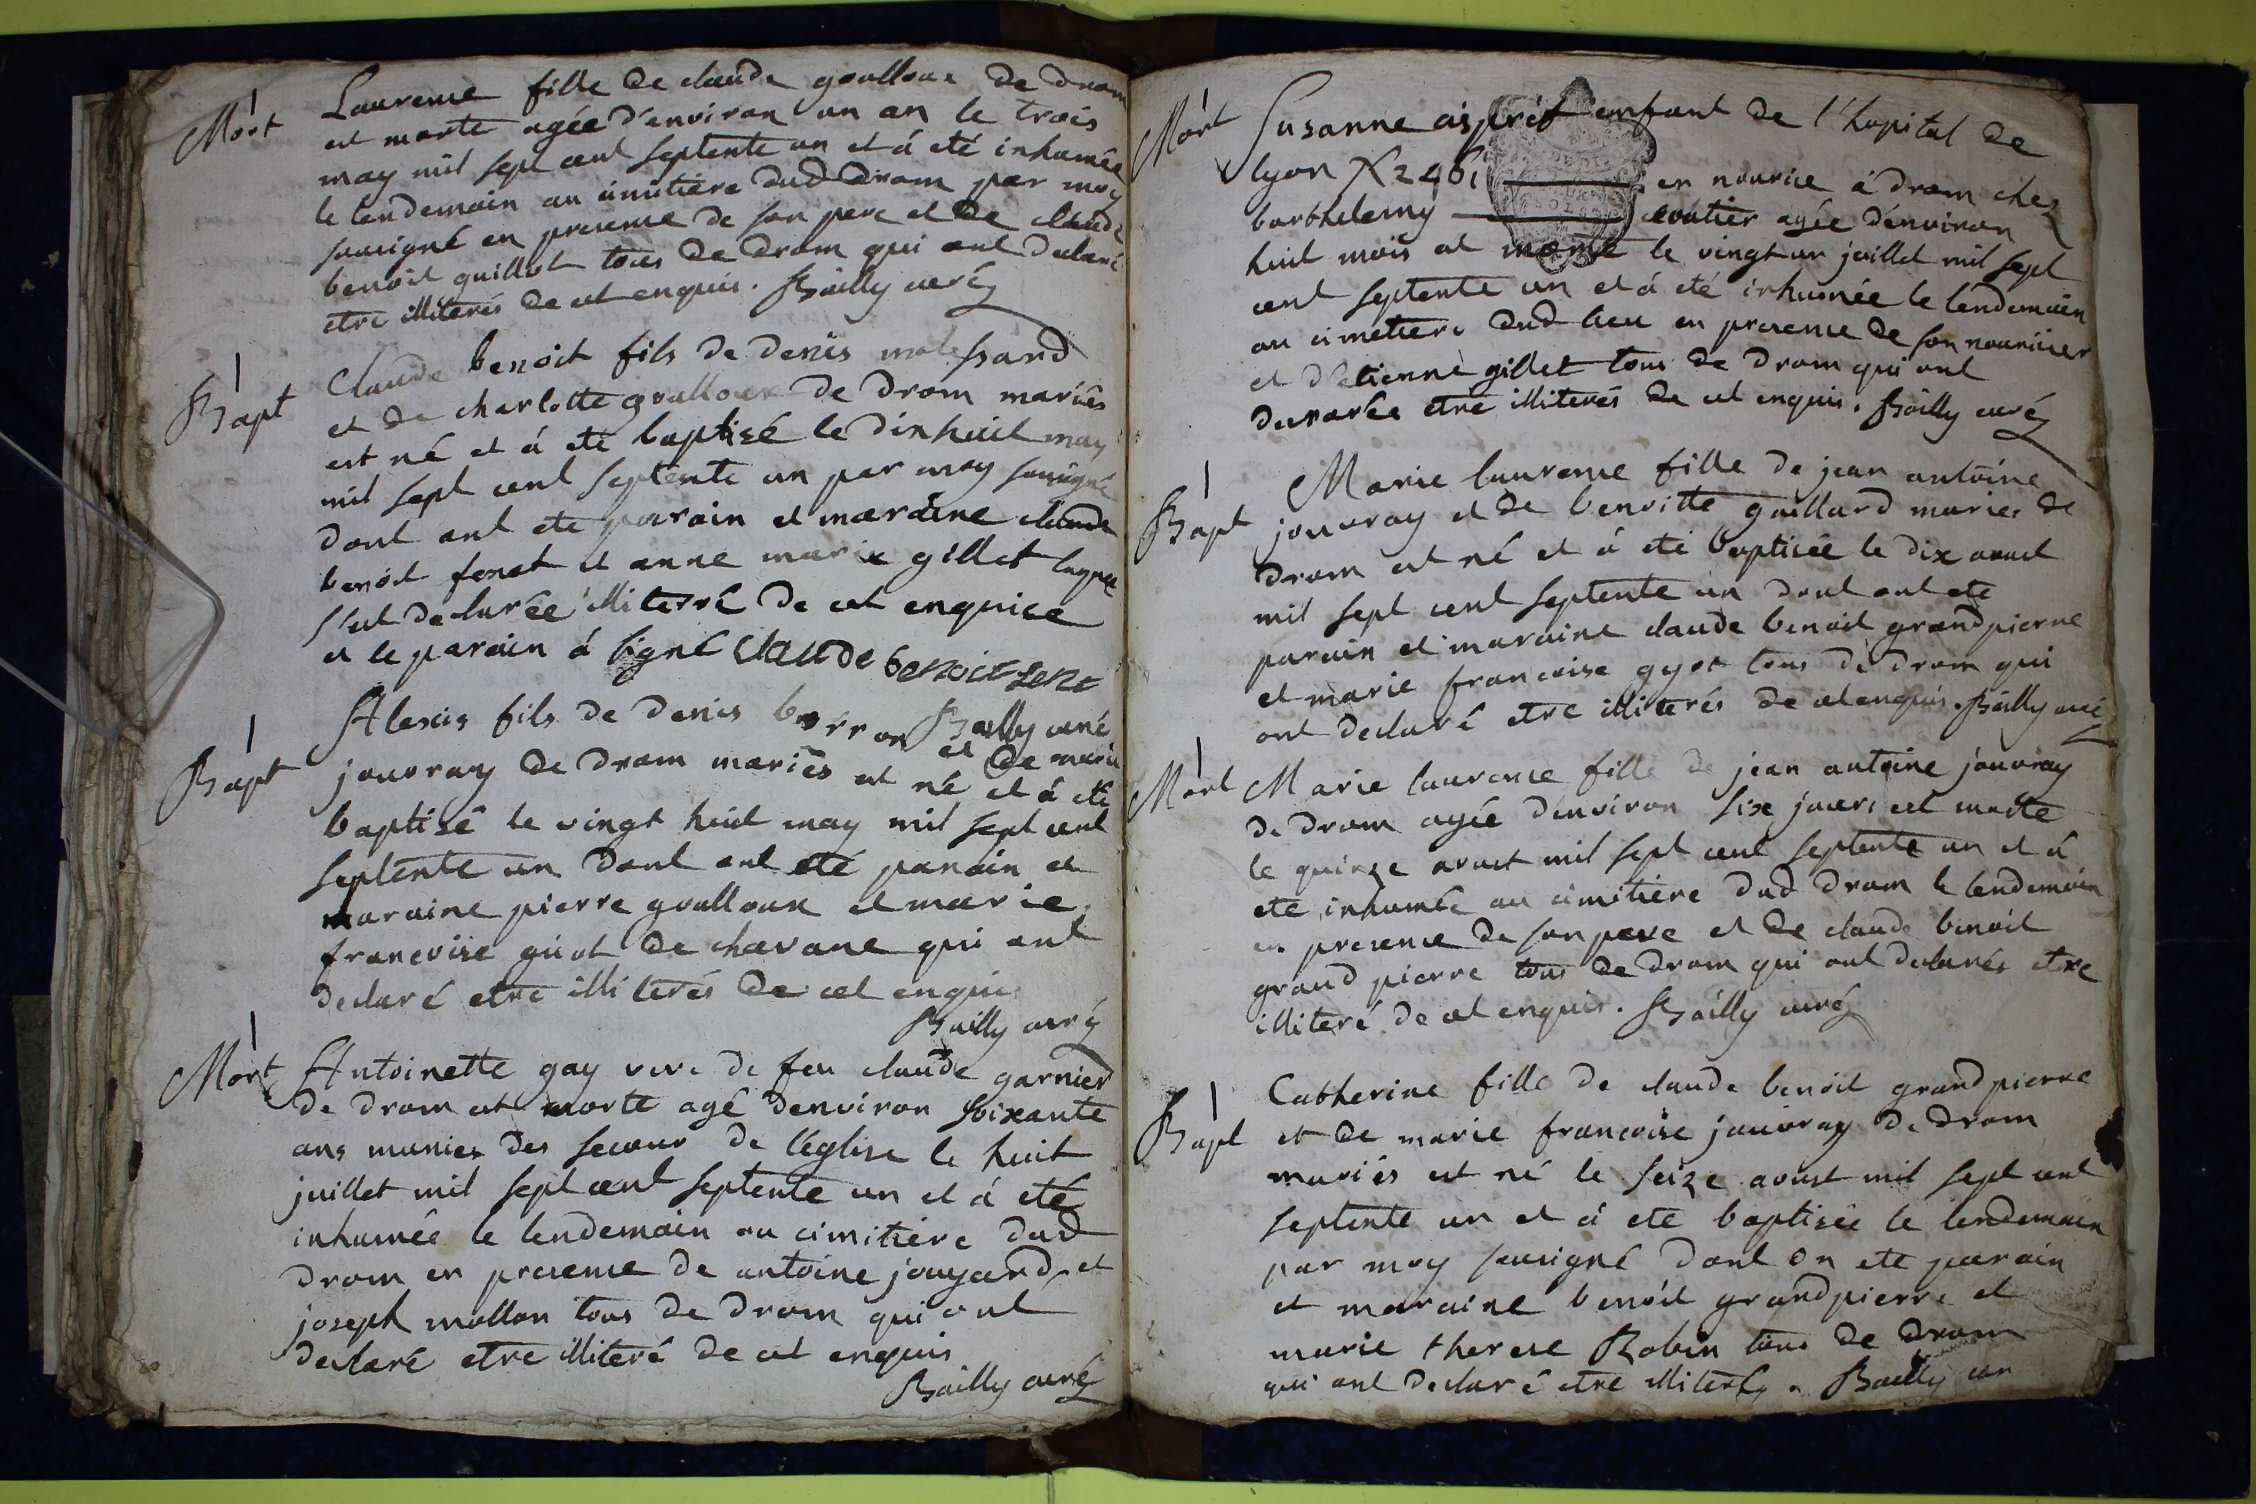 Mort
Laurence fille de claude goulloux de drom
est morte agée d'environ un an le trois
may mil sept cent septente un et á eté inhumée
le lendemain au cimitiere dud drom par moy
sousigné en presence de son pere et de claude
benoit guillot tous de drom qui ont declaré
etre illiterés de cet enquis. Bailly curé
Bapt
Claude benoit fils de denis
et de charlotte goulloux de drom mariés
est né et á eté baptisé le dixhuit may
mil sept cent septente un par moy sousigné
dont ont ete parain et maraine claude
benoit fenet et anne marie gillet laquelle
s'est declarée illiterré de cet enquice
et le parain á signé claude benoit fene
Bailly curé
Bapt
Alexis fils de denis borron et de marie
jouvray de drom mariés est né et á eté
baptisé le vingt huit may mil sept cent
septente un dont ont eté parain et
maraine pierre goulloux et marie
francoise guiot de chavane qui ont
declaré etre illiterés de cet enquis
Bailly curé
Mort
Antoinette gay veve de feu claude garnier
de drom est morte agé denviron soixante
ans munies des secour de l'église le huit
juillet mil sept cent septente un et á eté
inhumée le lendemain au cimitiére dud
drom en presence de antoine jouyard et
joseph mollon tous de drom qui ont
declaré etre illiteré de cet enquis
Bailly curé
Mort
Susanne aisprit enfant de l'hopital de
lyon N 2461 en nourice á drom chez
barthelemy coutier agée d'environ
huit mois est morte le vingt un juillet mil sept
cent septente un et á eté inhumée le lendemain
au cimetiere dud lieu en presence de son nouricier
et d'etienne gillet tous de drom qui ont
declarée etre illiterés de cet enquis. Bailly curé
Bapt
Marie laurence fille de jean antoine
jouvray et de benoitte gaillard maries de
drom est né et á eté baptisée le dix aoust
mil sept cent septente un dont ont ete
parain et maraine claude benoit grandpierre
et marie francoise gyot tous de drom qui
ont declaré etre illiterés de cet enquis. Bailly curé
Mort
Marie laurence fille de jean antoine jouvray
de drom agée d'environ six jours est morte
le quinze aoust mil sept cent septente un et á
ete inhumée au cimitiere dud drom le lendemain
en presence de son pere et de claude benoit
grand pierre tous de drom qui ont declarés etre
illiteré de cet enquis. Bailly curé
Bapt
Catherine fille de claude benoit grandpierre
et de marie francoise jouvray de drom
mariés est né le seize aoust mil sept cent
septente un et á ete baptisée le lendemain
par moy sousigné dont on ete parain
et maraine benoit grandpierre et
marie therese Robin tous de drom
qui ont declaré etre illiterés. Bailly cur